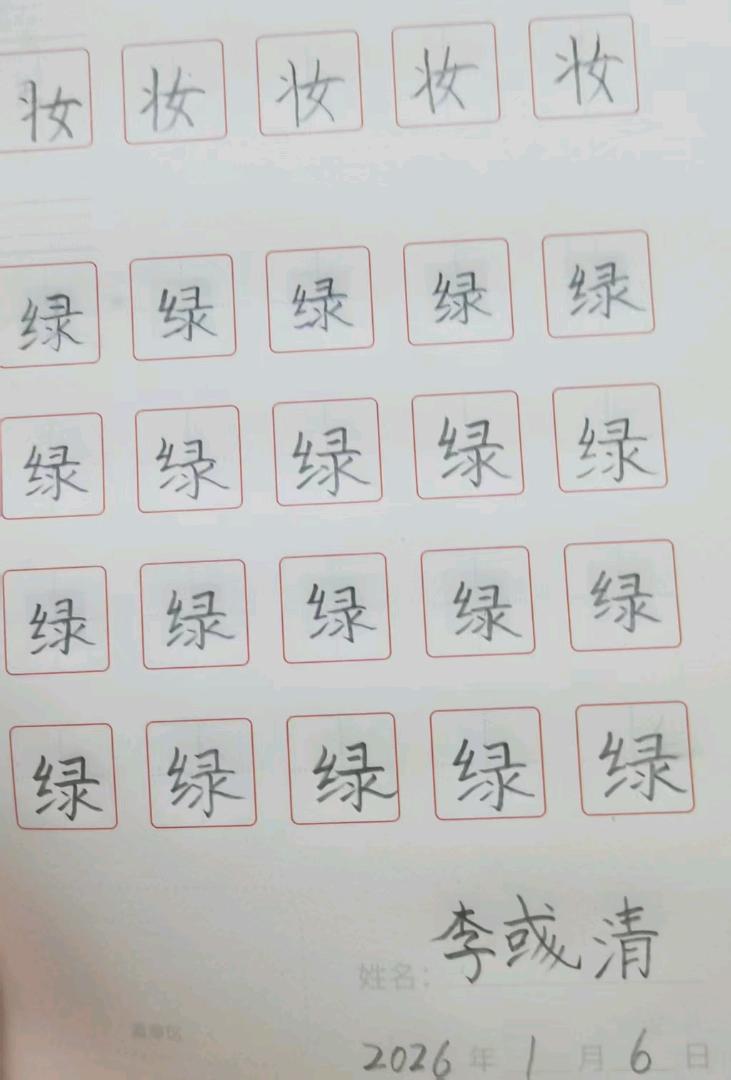 妆 妆 妆 妆 妆
绿 绿 绿 绿 绿
绿 绿 绿 绿 绿
绿 绿 绿 绿 绿
绿 绿 绿 绿 绿
姓名：李彧清
2026 年 1 月 6 日